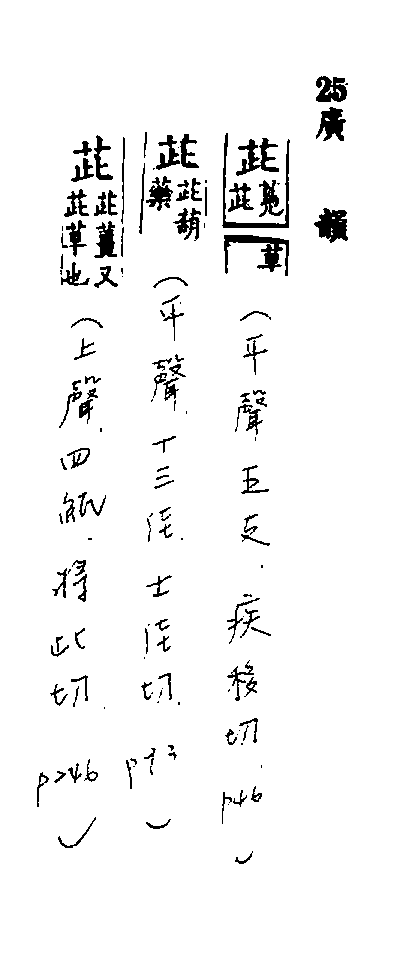 25廣韻
茈 鳧茈草（平聲．五支．疾移切．p46）
茈 茈葫藥（平聲．十三佳．士佳切．p93）
茈 茈薑又茈草也（上聲．四紙．將此切．p246）